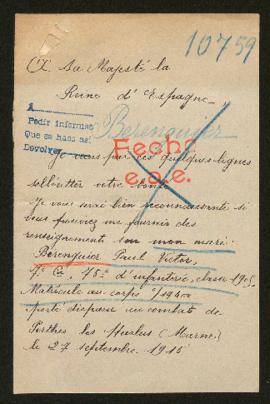 10759
A Sa Majesté la
Reine d'Espagne
Pedir informes
Que se haga así
Devolver
Berenguier
Fecho
e.s.e.
Je viens par ces quelques lignes
solliciter votre bonté
Je vous serai bien reconnaissante si
vous pouviez me fournir des
renseignements sur mon mari:
Berenguier Paul Victor,
7e Cie, 75e d'infanterie, classe 1905,
Matricule au corps
porté disparu au combat de
Perthes les Hurlus (Marne)
le 27 septembre 1915